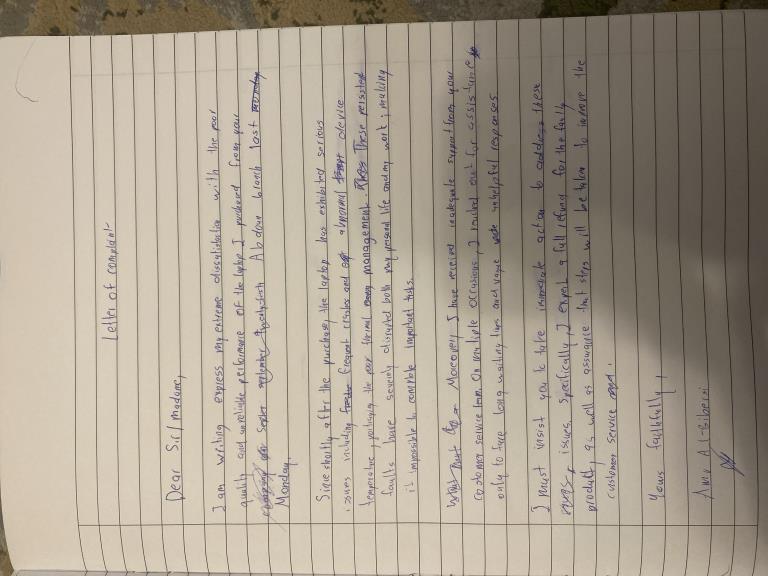 Letter of complaint
Dear Sir/madame,
I am writing express my extreme dissatisfaction with the poor
quality and unreliable performance of the laptop I purchased from your
Abdoun branch last
Monday.
Since shortly after the purchase, the laptop has exhibited serious
issues including frequent crashes and abnormal device
temperature, perhaps the poor thermal management. These persisted
faults have severly disrupted both my personal life and my work; making
it impossible to complete important tasks.
Moreover, I have received inadequate support from your
customer service team. On multiple occasions, I reached out for assistance
only to face long waiting times and vague unhelpful responses
I must insist you to take immediate action to address these
issues. Specifically, I expect a full refund for the faulty
product, as well as assurance that steps will be taken to improve the
customer service.
Yours faithfully,
Amr Al-Bibersi